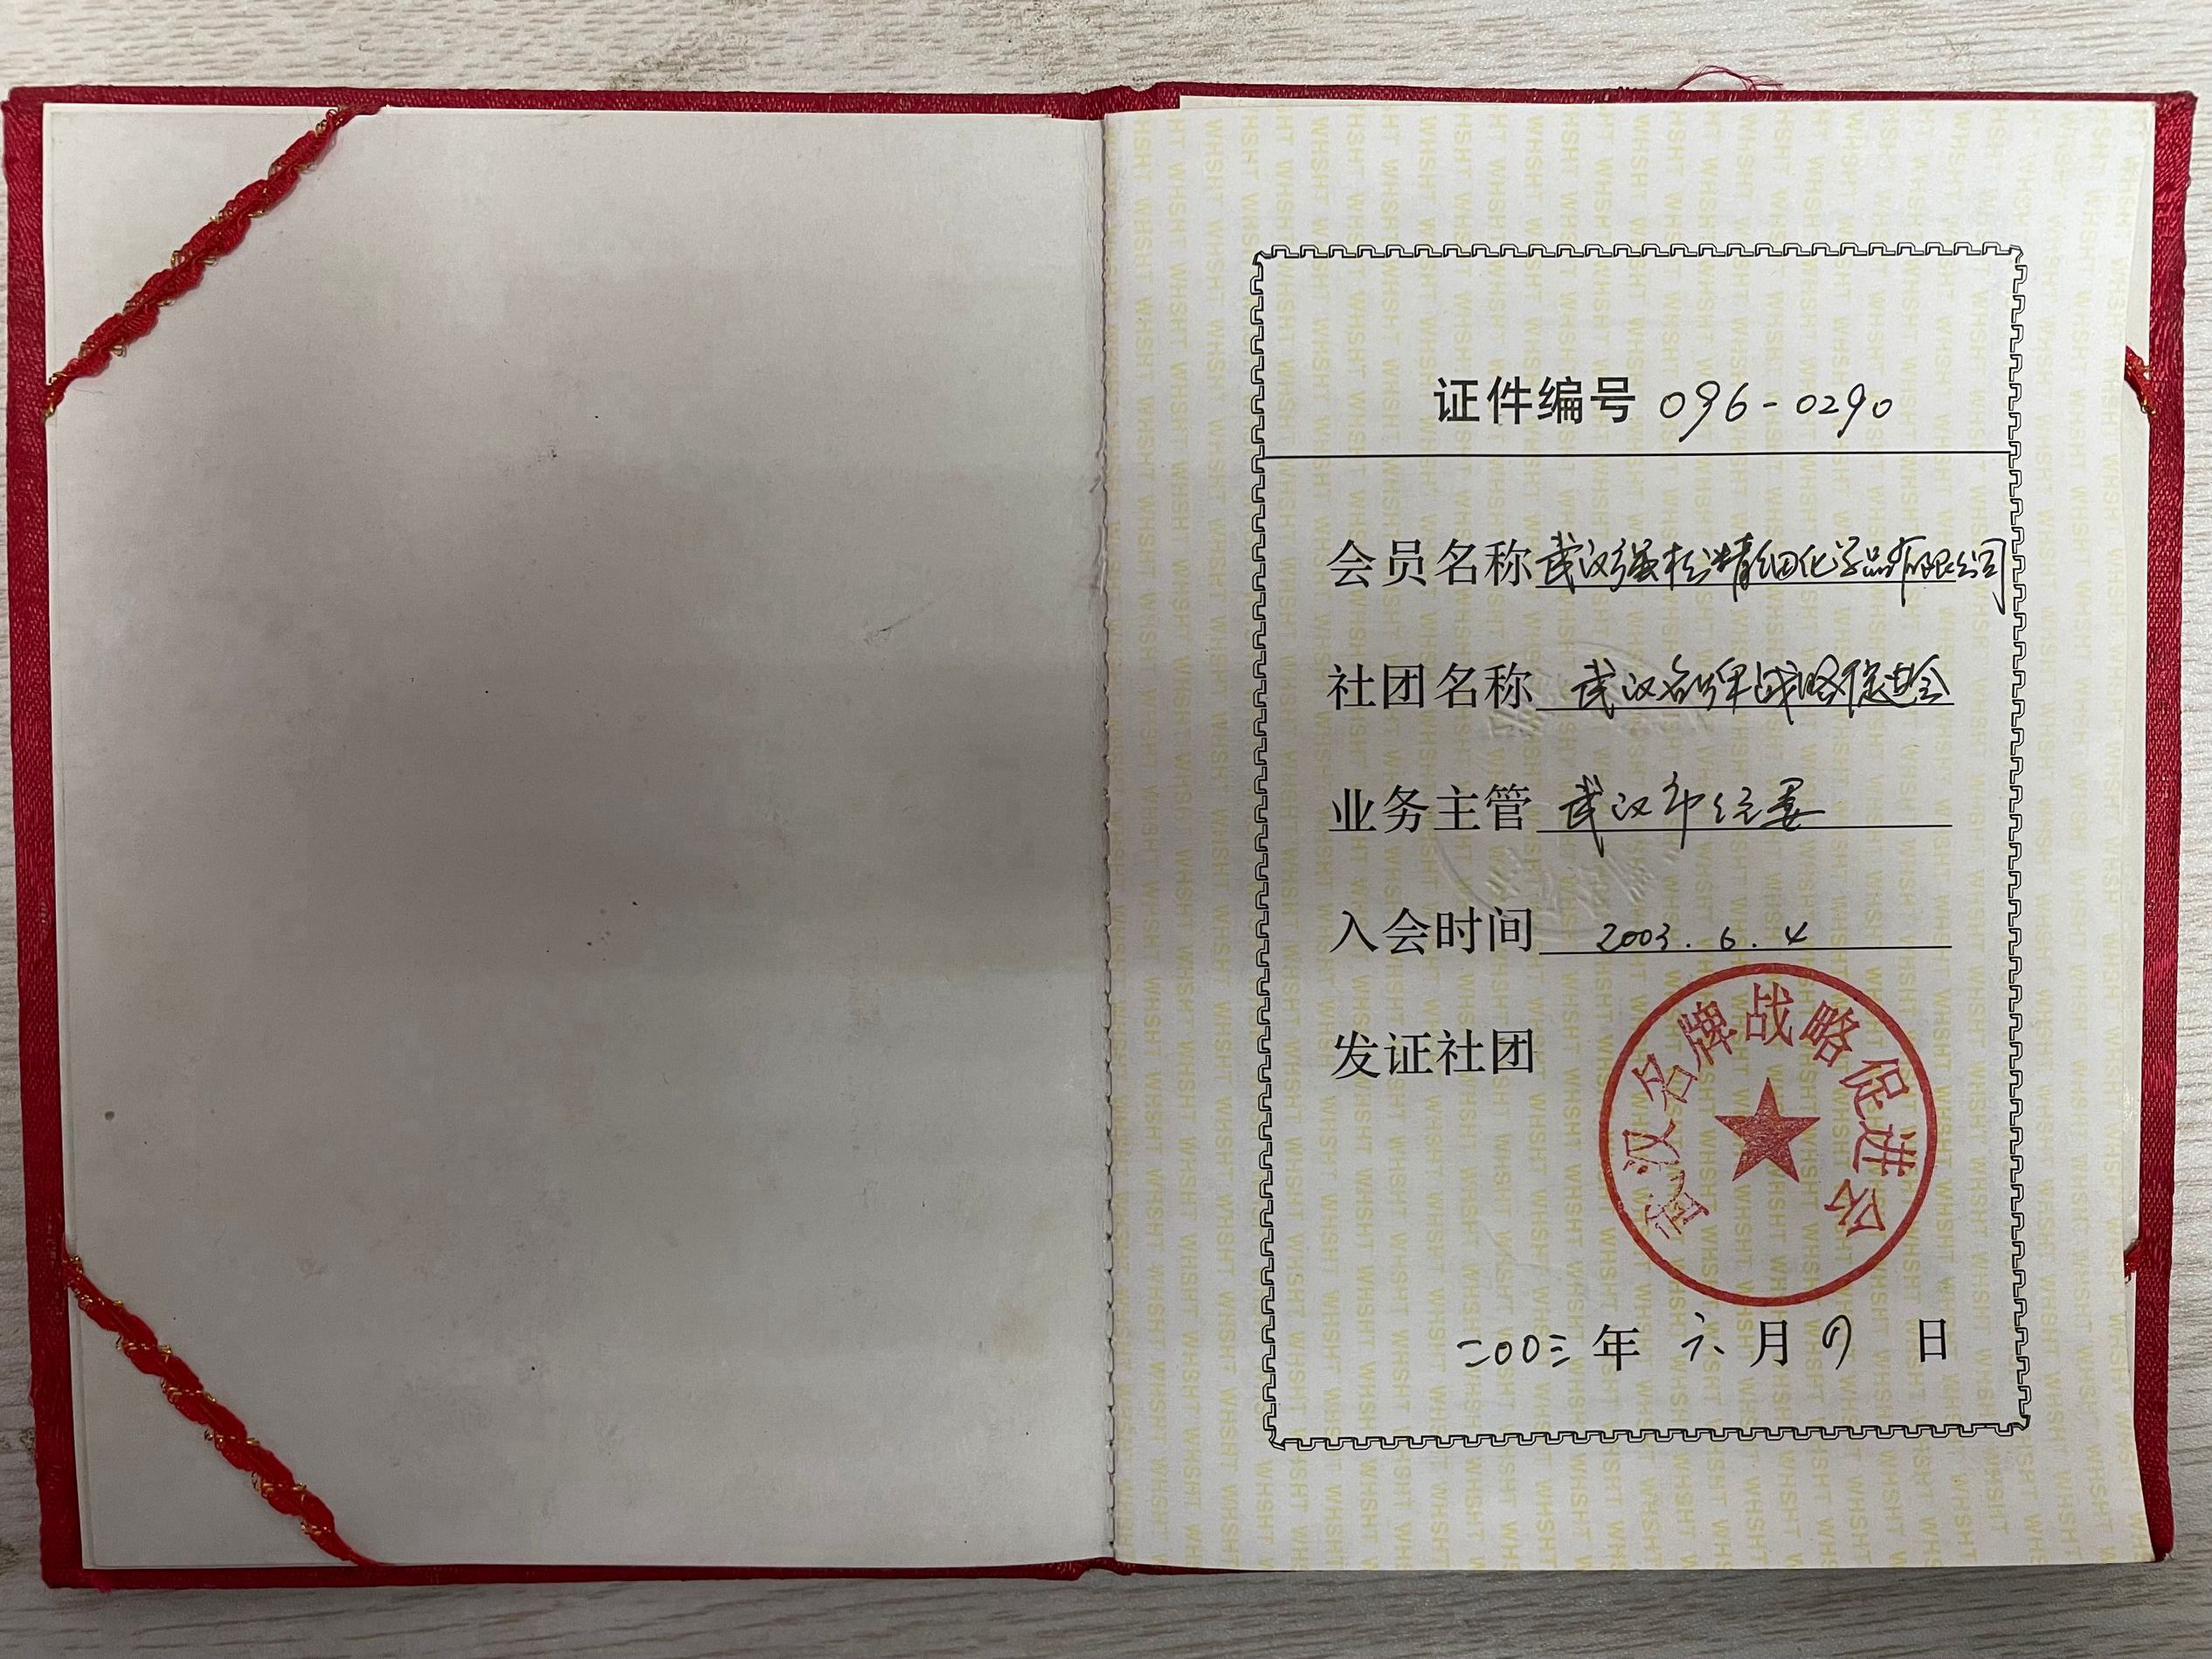 证件编号 096-0290
会员名称 武汉强松精细化学品有限公司
社团名称 武汉名牌战略促进会
业务主管 武汉市经委
入会时间 2003.6.4
发证社团
武汉名牌战略促进会
二00三年 六月 日